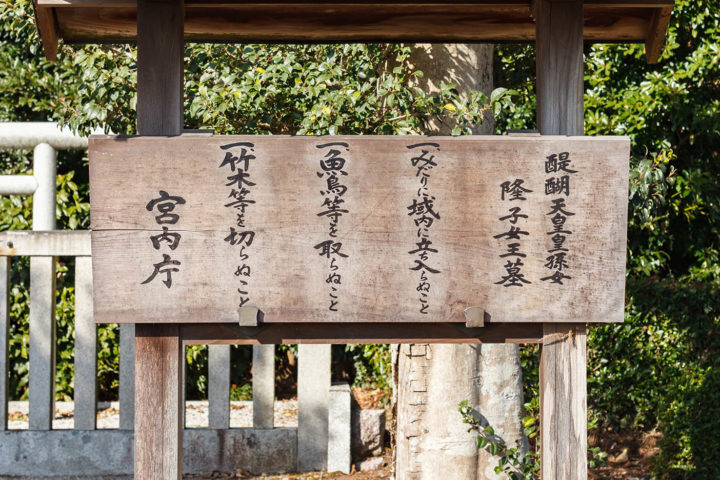 醍醐天皇皇孫女
隆子女王墓
一みだりに域内に立ち入らぬこと
一魚鳥等を取らぬこと
一竹木等を切らぬこと
宮内庁